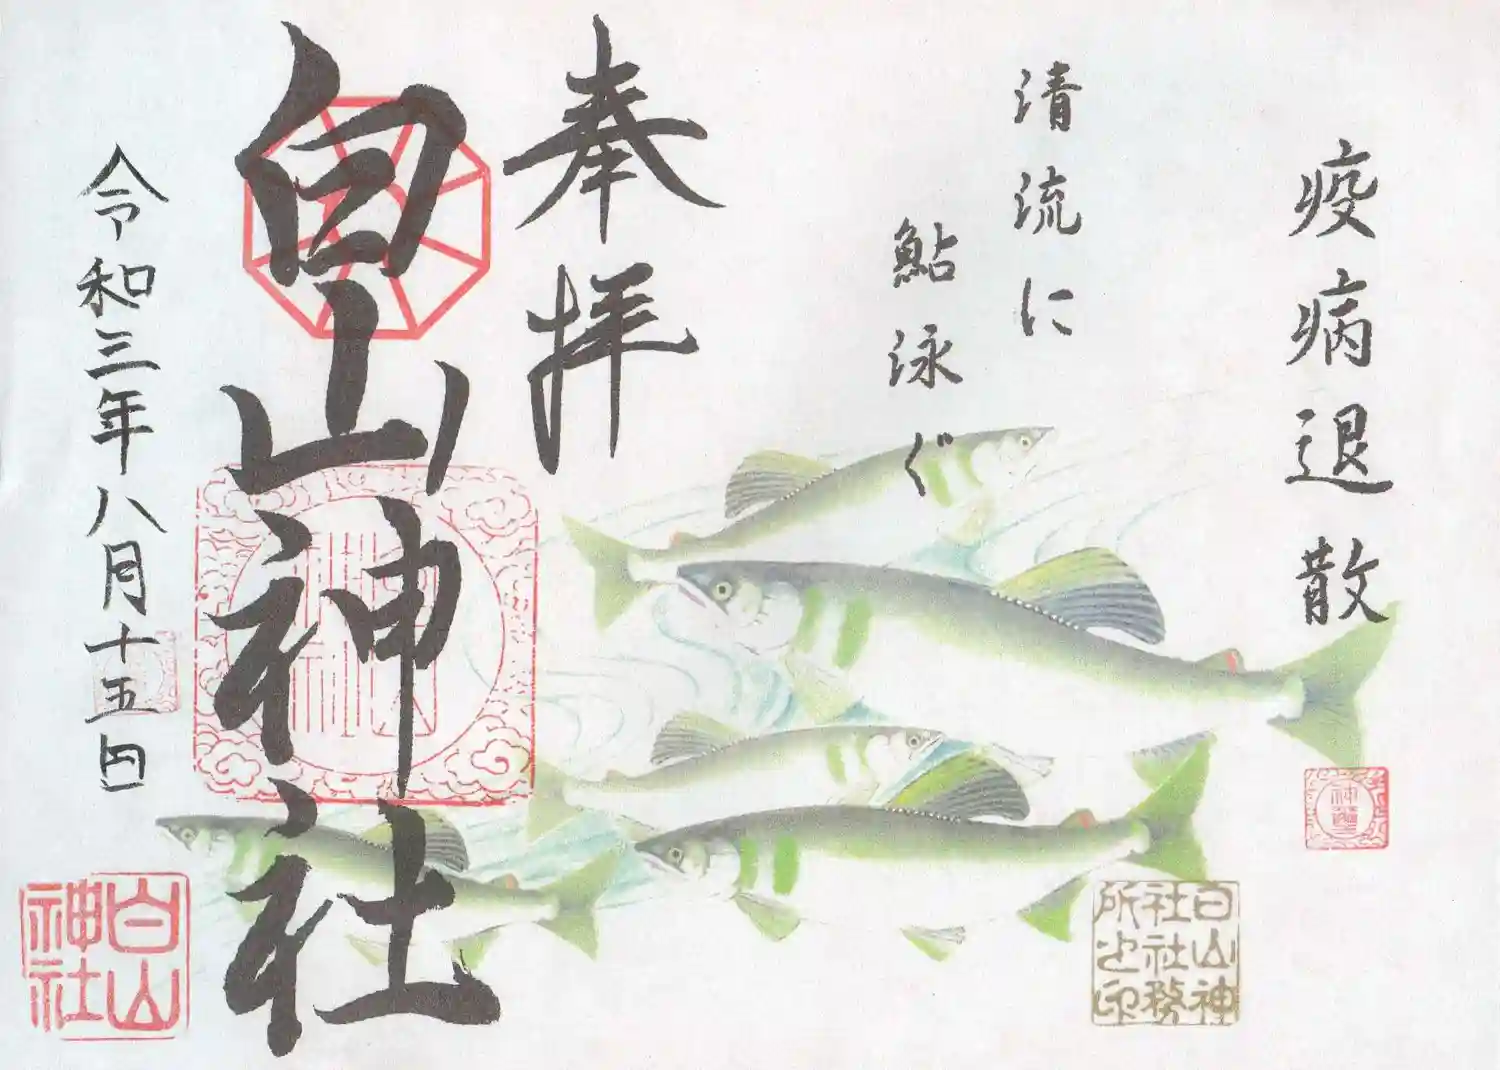 疫病退散
清流に
鮎泳ぐ
奉拝
白山神社
令和三年八月十五日
白山神社社務所之印
白山神社